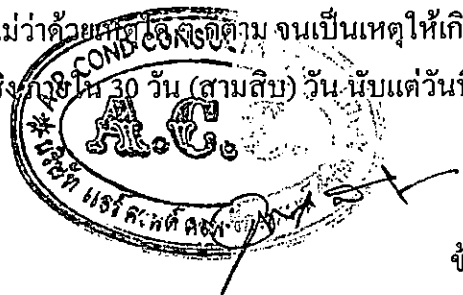 ไม่ว่าด้วยเหตุใด ๆ ก็ตาม จนเป็นเหตุให้เกิ
ภายใน 30 วัน (สามสิบ) วัน นับแต่วันที่
AIR COND. CONSUL
A.C.
บริษัท แอร์คอนด์